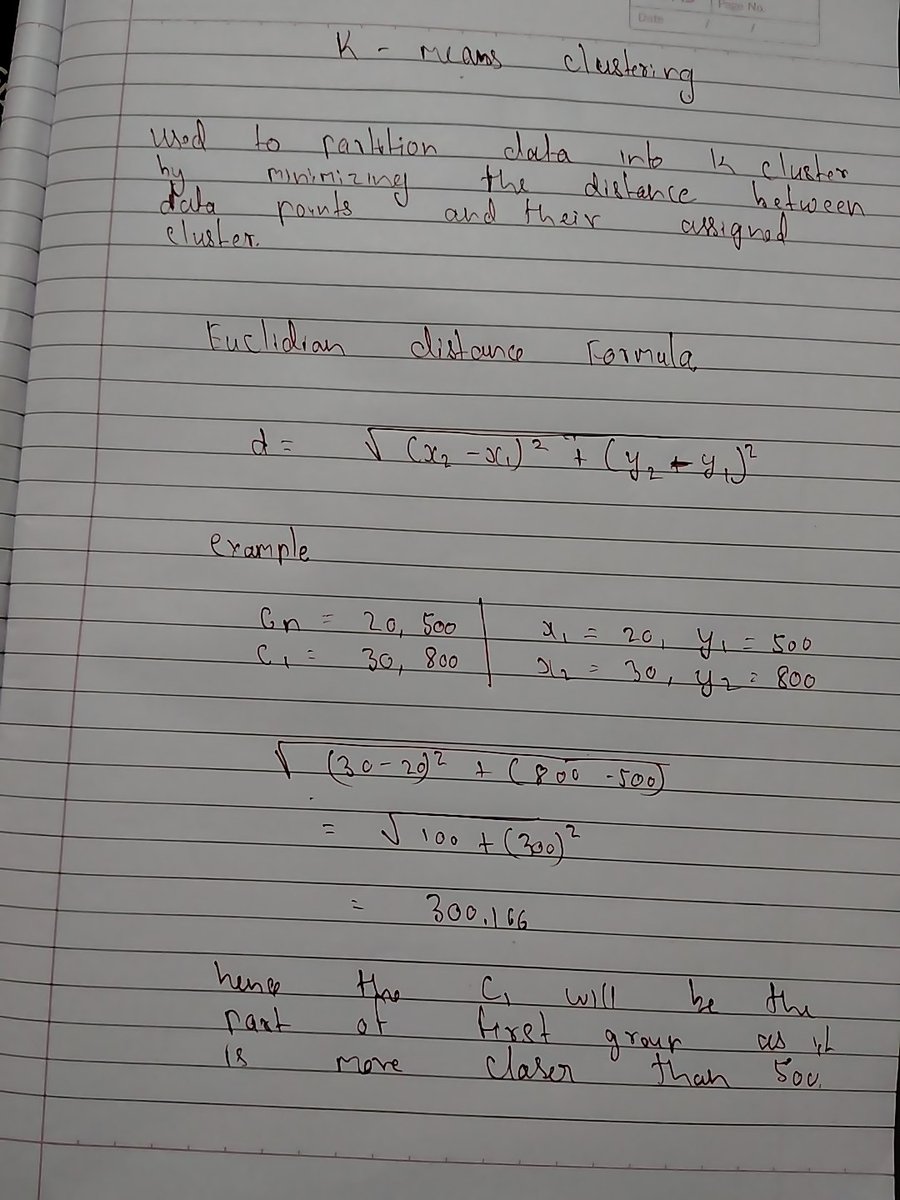 Page No.
Date / /
K - means clustering
used to partition data into K cluster
by minimizing the distance between
data points and their assigned
cluster.
Euclidian distance Formula
d = √(x₂ - x₁)² + (y₂ - y₁)²
example
Cn = 20, 500 | x₁ = 20, y₁ = 500
C₁ = 30, 800 | x₂ = 30, y₂ = 800
√(30-20)² + (800-500)
= √100 + (300)²
= 300.166
hence the C₁ will be the
part of first group as it
is more closer than 500.